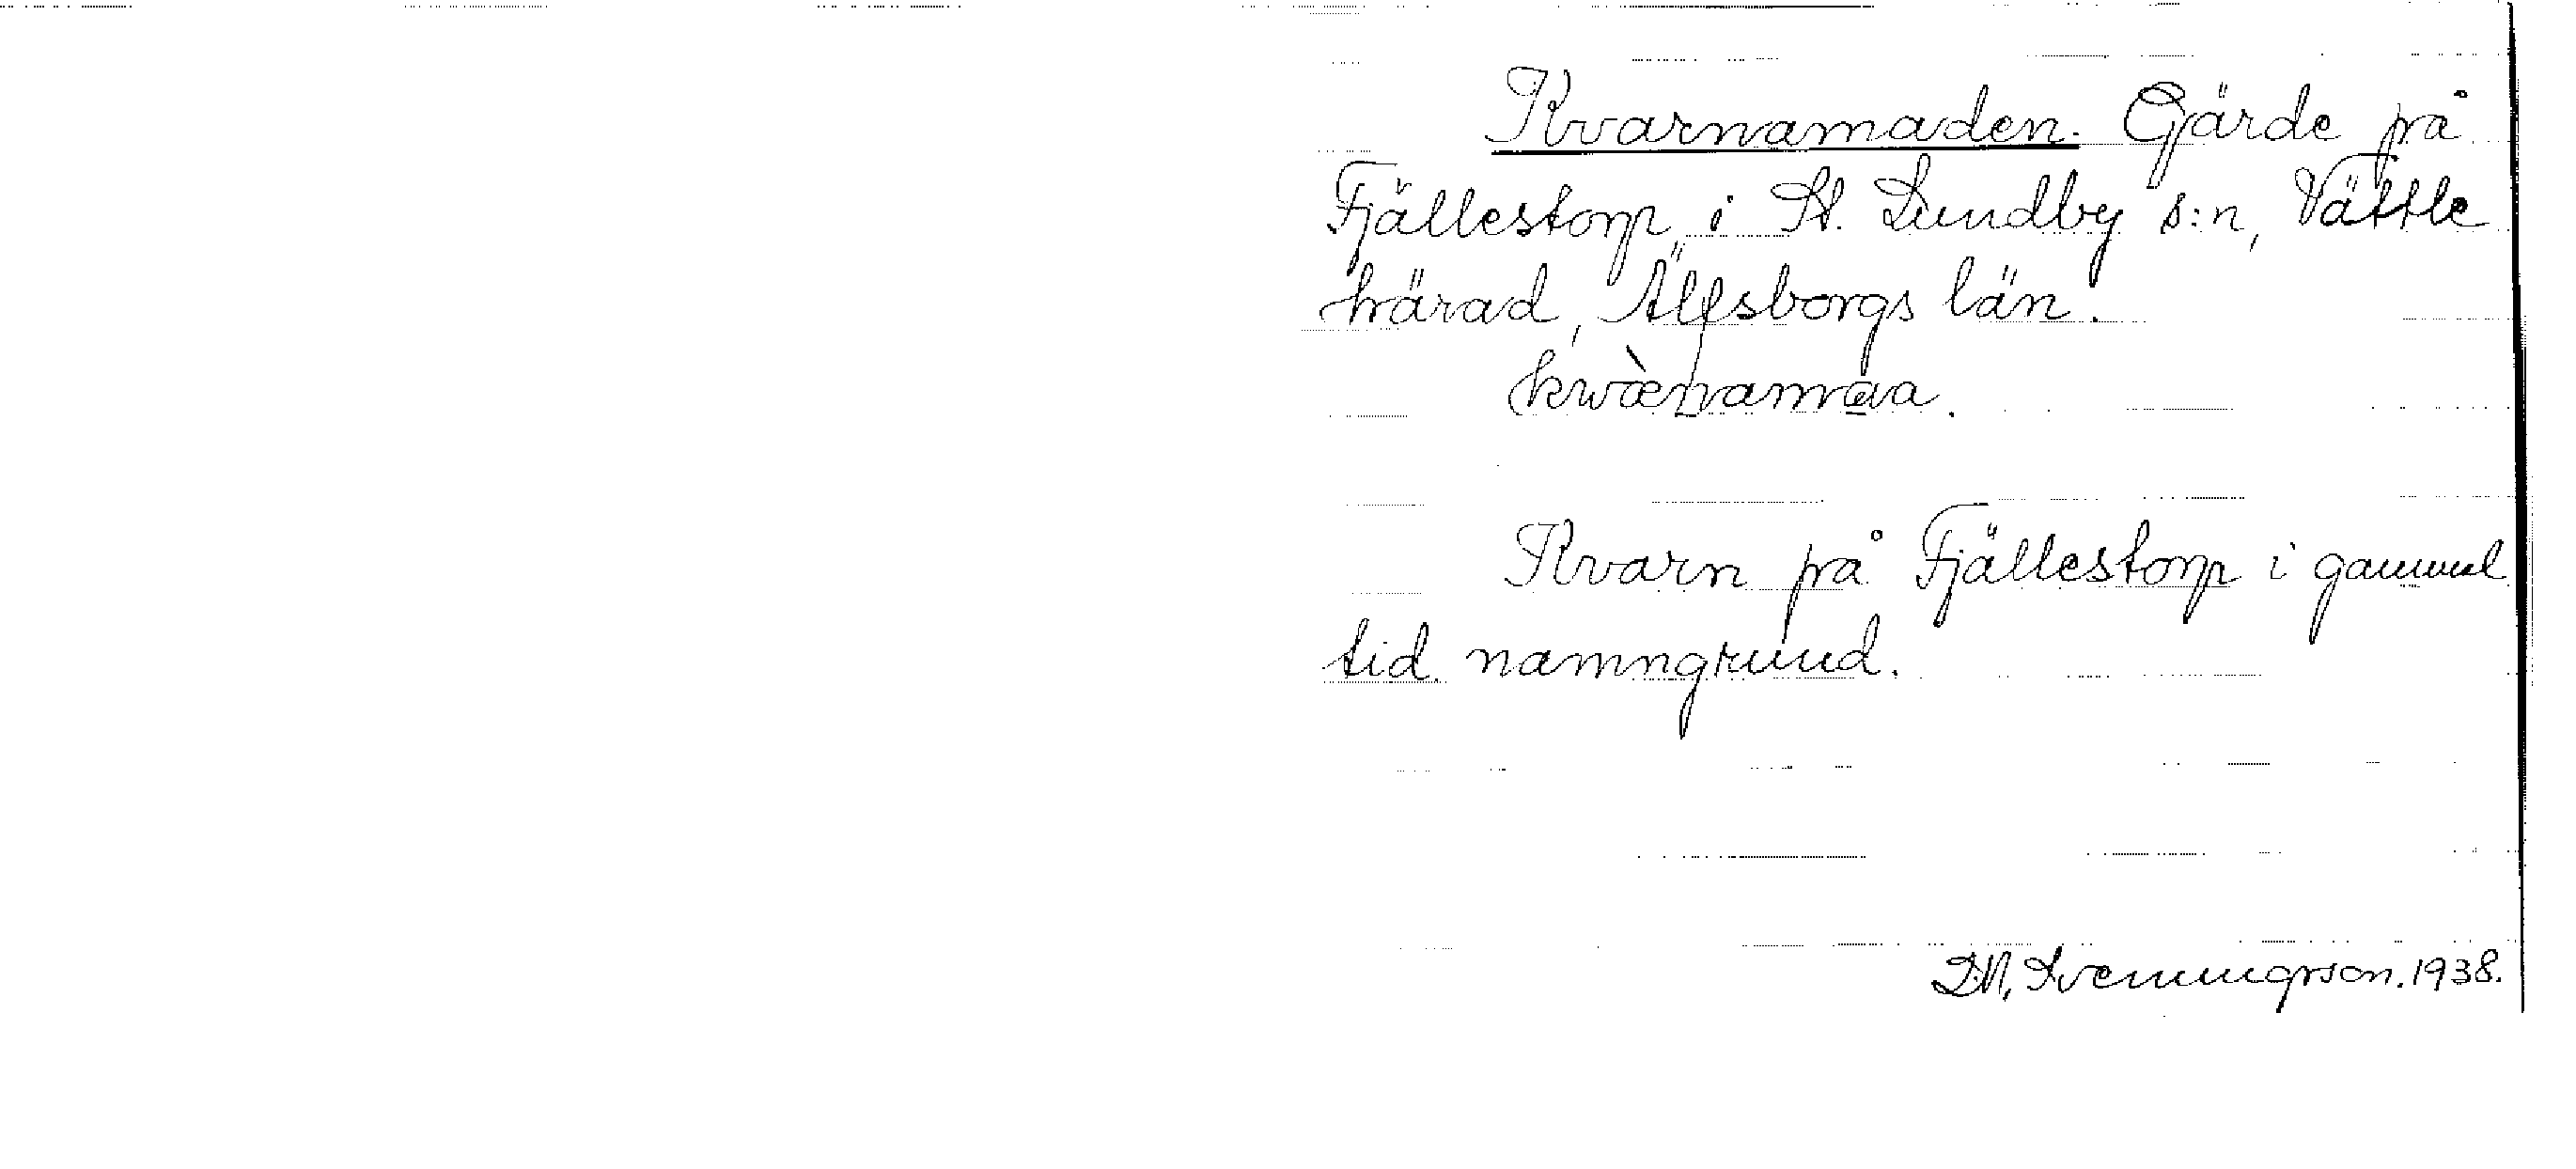 Kvarnamaden. Gärde på
Fjällestorp i St. Lundby s:n, Vättle
härad, Älfsborgs län.
kwæ̀namaa.
Kvarn på Fjällestorp i gammal
tid namngrund.
D.N. Svenningsson. 1938.